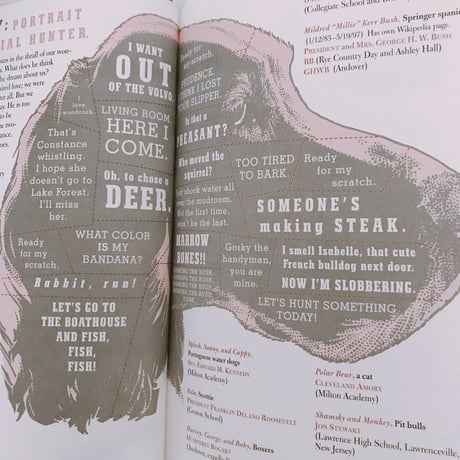 PORTRAIT
IAL HUNTER.
oues in the thrall of our won-
s. What does he think
he dream about us?
ited love; we were
er all. But we
ys. He is too
is because
the two-
tance.
ves.
I WANT
OUT
OF THE VOLVO.
I love
woodcock.
LIVING ROOM,
HERE I
COME.
That's
Constance
whistling.
I hope she
doesn't go to
Lake Forest.
I'll miss
her.
Oh, to chase a
DEER.
Ready
for my
scratch.
WHAT COLOR
IS MY
BANDANA?
Rabbit, run!
LET'S GO TO
THE BOATHOUSE
AND FISH,
FISH,
FISH!
Ready for
my
scratch.
PRUDENCE,
I THINK I LOST
YOUR SLIPPER.
Is that a
PHEASANT?
Who moved the
squirrel?
TOO TIRED
TO BARK.
Ready
for my
scratch.
that shook water all
over the mudroom.
Not the first time,
won't be the last.
SOMEONE'S
making STEAK.
MARROW
BONES!!
Gorky the
handyman,
you are
mine.
I smell Isabelle, that cute
French bulldog next door.
NOW I'M SLOBBERING.
LET'S HUNT SOMETHING
TODAY!
(Collegiate School and
Mildred "Millie" Kerr Bush, Springer spani
(1/12/85-5/19/97) Has own Wikipedia page.
PRESIDENT AND MRS. GEORGE H. W. BUSH
BB (Rye Country Day and Ashley Hall)
GHWB (Andover)
Splash, Sunny, and Cappy,
Portuguese water dogs
SEN. EDWARD M. KENNEDY
(Milton Academy)
Fala, Scottie
PRESIDENT FRANKLIN DELANO ROOSEVELT
(Groton School)
Harvey, George, and Baby, Boxers
HUMPHREY BOGART
(Andover, expelled
Polar Bear, a cat
CLEVELAND AMORY
(Milton Academy)
Shamsky and Monkey, Pit bulls
JON STEWART
(Lawrence High School, Lawrenceville,
New Jersey)